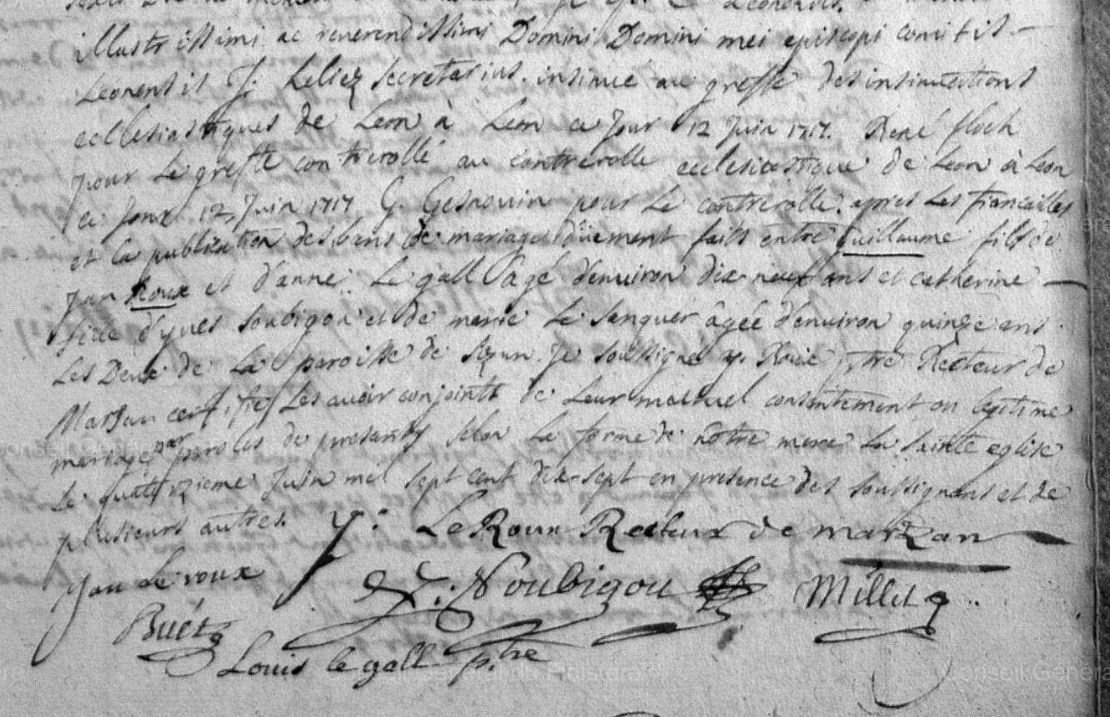 illustrissimi ac reverendissimi Domini Domini mei episcopi comitis
Leonensis J: Leliez secretarius. insinué au greffe des insinuations
ecclesiastiques de Leon à Leon ce Jour 12 Juin 1717. René floch
pour Le greffe controllé au contrerolle ecclesiastique de Leon à Leon
ce Jour 12, Juin 1717 G. Gesnouin pour Le contrerolle. apres Les fiancailles
et La publication des bans de mariages düement faits entre guillaume fils de
Jan Roux et d'anne Le gall âgé d'environ dix neuf ans et catherine
fille d'yves Soubigou et de marie Le Senquer âgée d'environ quinze ans
Les Deux de La paroisse de Sizun. Je soussigné y. Roux ptre Recteur de
Martzan certifie Les avoir conjoints de Leur mutuel consentement en legitime
mariage par paroles de presants selon La forme de notre mere La Sainte eglise
Le quatorzieme Juin mil sept cent dix-sept en presence des soussignants et de
plusieurs autres. Y: Le Roux Recteur de martzan
Jan Le roux Y: Soubigou Millet
Buét
Louis le gall ptre